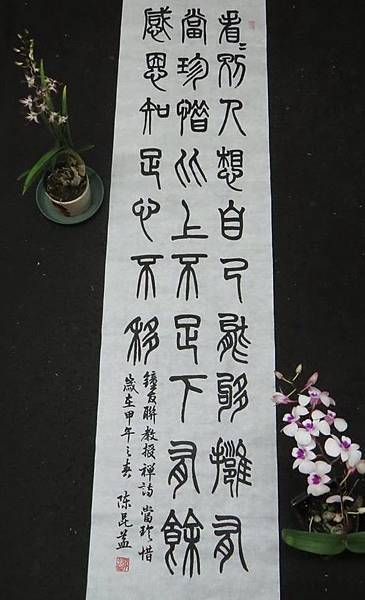 看〻別人想自己能夠擁有
當珍惜比上不足下有餘
感恩知足心不移
鍾友聯教授禪詩 當珍惜
歲在甲午之春 陳昆益